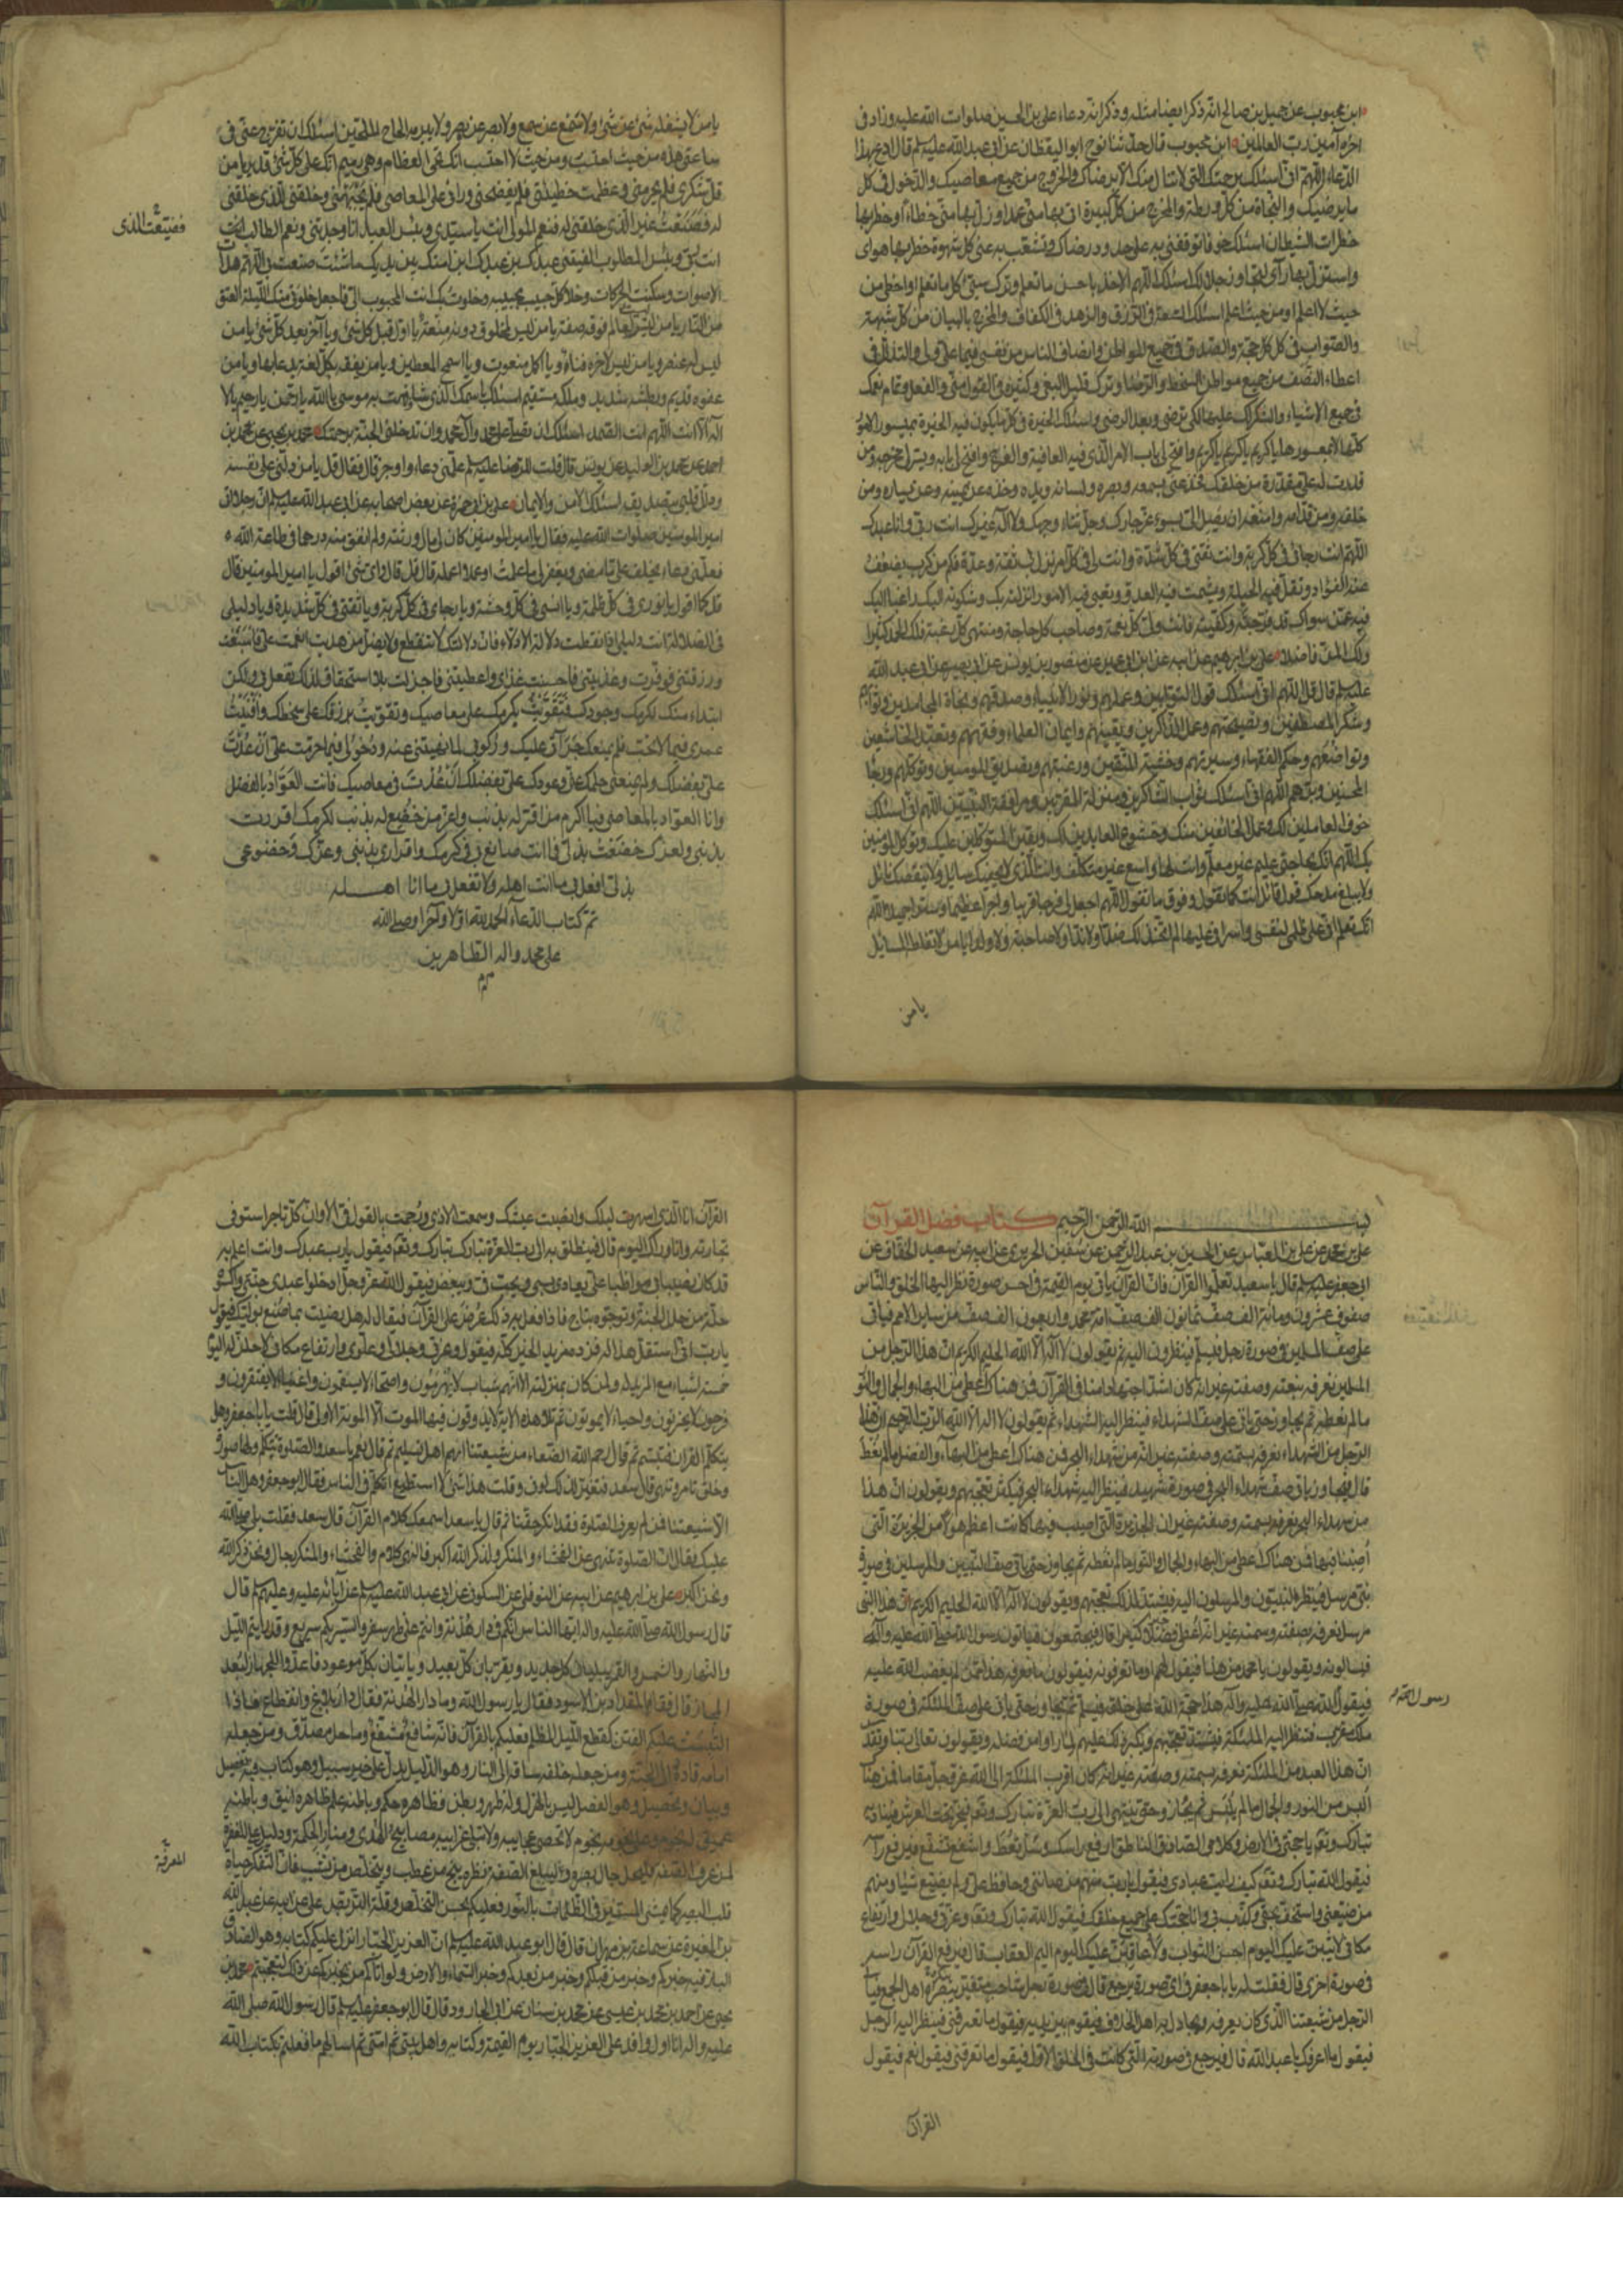 ابن محبوب عن جميل بن صالح انه ذكر ايضا مثله وذكر انه دعاء علي بن الحسين صلوات الله عليه وزاد في
اخره آمين رب العالمين ابن محبوب قال حدثنا نوح ابو اليقظان عن ابي عبد الله عليه السلم قال ادع بهذا
الدعاء اللهم اني اسئلك برحمتك التي لا تنال منك الا برضاك والخروج من جميع معاصيك والدخول في كل
ما يرضيك والنجاة من كل ورطة والمخرج من كل كبيرة اتى بها مني عمد او زل بها مني خطاء او خطر بها
خطرات الشيطان اسئلك خوفا توقفني به على حدود رضاك وتشعب به عني كل شهوة خطر بها هواي
واستزل بها رأيي ليجاوز حد حلالك اسئلك اللهم الاخذ باحسن ما تعلم وترك سيئ كل ما تعلم او اخطئ من
حيث لا اعلم او من حيث اعلم اسئلك السعة في الرزق والزهد في الكفاف والمخرج بالبيان من كل شبهة
والصواب في كل حجة والصدق في جميع المواطن وانصاف الناس من نفسي فيما علي ولي والتذلل في
اعطاء النصف من جميع مواطن السخط والرضا وترك قليل البغي وكثيره في القول مني والفعل وتمام نعمك
في جميع الاشياء والشكر لك عليها لكي ترضى وبعد الرضى واسئلك الخيرة في كل ما يكون فيه الخيرة بميسور الامور
كلها لا بمعسورها يا كريم يا كريم يا كريم وافتح لي باب الامر الذي فيه العافية والفرج وافتح لي بابه ويسر لي مخرجه ومن
قدرت له علي مقدرة من خلقك فخذ عني بسمعه وبصره ولسانه ويده وخذه عن يمينه وعن يساره ومن
خلفه ومن قدامه وامنعه ان يصل الي بسوء عز جارك وجل ثناء وجهك ولا اله غيرك انت ربي وانا عبدك
اللهم انت رجائي في كل كربة وانت ثقتي في كل شدة وانت لي في كل امر نزل بي ثقة وعدة فكم من كرب يضعف
عنه الفؤاد وتقل فيه الحيلة ويشمت فيه العدو وتعيى فيه الامور انزلته بك وشكوته اليك راغبا اليك
فيه عمن سواك قد فرجته وكفيته فانت ولي كل نعمة وصاحب كل حاجة ومنتهى كل رغبة فلك الحمد كثيرا
ولك المن فاضلا علي بن ابرهيم عن ابيه عن ابن ابي عمير عن منصور بن يونس عن ابي بصير عن ابي عبد الله
عليه السلم قال قل اللهم اني اسئلك قول التوابين وعملهم ونور الانبياء وصدقهم ونجاة المجاهدين وثوابهم
وشكر المصطفين ونصيحتهم وعمل الذاكرين ويقينهم وايمان العلماء وفقههم وتعبد الخاشعين
وتواضعهم وحكم الفقهاء وسيرتهم وخشية المتقين ورغبتهم وتصديق المومنين وتوكلهم ورجاء
المحسنين وبرهم اللهم اني اسئلك ثواب الشاكرين ومنزلة المقربين ومرافقة النبيين اللهم اني اسئلك
خوف العاملين لك وعمل الخائفين منك وخشوع العابدين لك ويقين المتوكلين عليك وتوكل المومنين
بك اللهم انك بحاجتي عليم غير معلم وانت لها واسع غير متكلف وانت الذي لا يحفيك سايل ولا ينقصك نائل
ولا يبلغ مدحك قول قائل انت كما تقول وفوق ما نقول اللهم اجعل لي فرجا قريبا واجرا عظيما وسترا جميلا اللهم
انك تعلم اني على ظلمي لنفسي واسرافي عليها لم اتخذ لك ضدا ولا ندا ولا صاحبة ولا ولدا يا من لا تغلطه المسايل
يا من
يا من لا يشغله شئ عن شئ ولا سمع عن سمع ولا بصر عن بصر ولا يبرمه الحاح الملحين اسئلك ان تفرج عني في
ساعتي هذه من حيث احتسب ومن حيث لا احتسب انك تحيي العظام وهي رميم انك على كل شئ قدير يا من
قل شكري فلم يحرمني وعظمت خطيئتي فلم يفضحني ورآني على المعاصي فلم يجبهني وخلقني للذي خلقني
له فصنعت غير الذي خلقني له فنعم المولى انت يا سيدي وبئس العبد انا وجدتني ونعم الطالب انت
فضيعت الذي
انت ربي وبئس المطلوب الفيتني عبدك بن عبدك ابن امتك بين يديك ما شئت صنعت بي اللهم هدأت
الاصوات وسكنت الحركات وخلا كل حبيب بحبيبه وخلوت بك انت المحبوب الي فاجعل خلوتي منك الليلة العتق
من النار يا من ليس لعالم فوقه صفة يا من ليس لمخلوق دونه منعة يا اول قبل كل شئ ويا آخر بعد كل شئ يا من
ليس له عنصر ويا من ليس لاخره فناء ويا اكمل منعوت ويا اسمح المعطين ويا من يفقه بكل لغة يدعا بها ويا من
عفوه قديم وبطشه شديد وملكه مستقيم اسئلك باسمك الذي شافهت به موسى يا الله يا رحمن يا رحيم يا لا
اله الا انت اللهم انت الصمد اسئلك ان تصلي على محمد وآل محمد وان تدخلني الجنة برحمتك محمد بن يحيى عن محمد بن
احمد عن محمد بن الوليد عن يونس قال قلت للرضا عليه السلم علمني دعاء واوجز قال فقال قل يا من دلني على نفسه
وذلل قلبي بتصديقه اسئلك الامن والايمان علي بن ابي حمزة عن بعض اصحابه عن ابي عبد الله عليه السلم ان رجلا اتى
امير المومنين صلوات الله عليه فقال يا امير المومنين كان لي مال ورثته ولم انفق منه درهما في طاعة الله
فعلمني دعاء يخلف علي ما مضى ويغفر لي ما عملت او عملا اعمله قال قل قال واي شئ اقول يا امير المومنين قال
قل كما اقول يا نوري في كل ظلمة ويا انسي في كل وحشة ويا رجاي في كل كربة ويا ثقتي في كل شديدة ويا دليلي
في الضلالة انت دليلي اذا انقطعت دلالة الادلاء فان دلالتك لا تنقطع ولا يضل من هديت انعمت علي فاسبغت
ورزقتني فوفرت وغذيتني فاحسنت غذاي واعطيتني فاجزلت بلا استحقاق لذلك بفعل مني ولكن
ابتداء منك لكرمك وجودك فتقويت بكرمك على معاصيك وتقويت برزقك على سخطك وافنيت
عمري فيما لا تحب فلم يمنعك جرأتي عليك وركوبي لما نهيتني عنه ودخولي فيما حرمت علي ان عدت
علي بفضلك ولم يمنعني حلمك عني وعودك علي بفضلك ان عدت في معاصيك فانت العواد بالفضل
وانا العواد بالمعاصي فيا اكرم من اقر له بذنب واعز من خضع له بذنب لكرمك اقررت
بذنبي ولعزك خضعت بذلي فما انت صانع بي في كرمك واقراري بذنبي وعزك وخضوعي
بذلي افعل بي ما انت اهله ولا تفعل بي ما انا اهله
تم كتاب الدعاء الحمد لله اولا وآخرا وصلى الله
على محمد واله الطاهرين
بسم الله الرحمن الرحيم كتاب فضل القرآن
علي بن محمد عن علي بن العباس عن الحسين بن عبد الرحمن عن سفين الحريري عن ابيه عن سعيد الخفاف عن
ابي جعفر عليه السلم قال يا سعيد تعلموا القرآن فان القرآن ياتي يوم القيمة في احسن صورة نظر اليها الخلق والناس
صفوف عشرون ومائة الف صف ثمانون الف صف امة محمد واربعون الف صف من ساير الامم فياتي
على صف المسلمين في صورة رجل فيسلم فينظرون اليه ثم يقولون لا اله الا الله الحليم الكريم ان هذا الرجل من
المسلمين نعرفه بنعته وصفته غير انه كان اشد اجتهادا منا في القرآن فمن هناك اعطي من البهاء والجمال والنور
ما لم نعطه ثم يجاوز حتى ياتي على صف الشهداء فينظر اليه الشهداء ثم يقولون لا اله الا الله الرب الرحيم ان هذا
الرجل من الشهداء نعرفه بسمته وصفته غير انه من شهداء البحر فمن هناك اعطي من البهاء والفضل ما لم نعط
قال فيجاوز ياتي صف شهداء البحر في صورة شهيد فينظر اليه شهداء البحر فيكثر تعجبهم ويقولون ان هذا
من شهداء البحر نعرفه بسمته وصفته غير ان الجزيرة التي اصيب فيها كانت اعظم هولا من الجزيرة التي
اصبنا فيها فمن هناك اعطي من البهاء والجمال والنور ما لم نعطه ثم يجاوز حتى ياتي صف النبيين والمرسلين في صورة
نبي مرسل فينظر النبيون والمرسلون اليه فيشتد لذلك تعجبهم ويقولون لا اله الا الله الحليم الكريم ان هذا النبي
مرسل نعرفه بصفته وسمته غير انه اعطي فضلا كثيرا قال فيجتمعون فياتون رسول الله صلى الله عليه وآله
فيسالونه ويقولون يا محمد من هذا فيقول لهم او ما تعرفونه فيقولون ما نعرفه هذا ممن لم يغضب الله عليه
رسول الله
فيقول الله صلى الله عليه وآله هذا حجة الله على خلقه فيسلم ثم يجاوز حتى ياتي على صف الملئكة في صورة
ملك مقرب فتنظر اليه الملئكة فيشتد تعجبهم ويكبر ذلك عليهم لما راوا من فضله ويقولون تعالى ربنا وتقدس
ان هذا العبد من الملئكة نعرفه بسمته وصفته غير انه كان اقرب الملئكة الى الله عز وجل مقاما فمن هناك
البس من النور والجمال ما لم نلبس ثم يجاوز حتى ينتهي الى رب العزة تبارك وتعالى فيخر تحت العرش فيناديه
تبارك وتعالى يا حجتي في الارض وكلامي الصادق الناطق ارفع راسك وسل تعط واشفع تشفع فيرفع رأسه
فيقول الله تبارك وتعالى كيف رايت عبادي فيقول يا رب منهم من صانني وحافظ علي ولم يضيع شيئا ومنهم
من ضيعني واستخف بحقي وكذب بي وانا حجتك على جميع خلقك فيقول الله تبارك وتعالى وعزتي وجلالي وارتفاع
مكاني لاثيبن عليك اليوم احسن الثواب ولاعاقبن عليك اليوم اليم العقاب قال فيرفع القرآن راسه
في صورة اخرى قال فقلت له يا ابا جعفر في اي صورة يرجع قال في صورة رجل شاحب متغير ينكره اهل الجمع فياتي
الرجل من شيعتنا الذي كان يعرفه ويجادل به اهل الخلاف فيقوم بين يديه فيقول ما تعرفني فينظر اليه الرجل
فيقول ما اعرفك يا عبد الله قال فيرجع في صورته التي كانت في الخلق الاول فيقول ما تعرفني فيقول نعم فيقول
القرآن
القرآن انا الذي اسهرت ليلك وانصبت عيشك وسمعت الاذى ورجمت بالقول في الا وان كل تاجر استوفى
تجارته وانا وراك اليوم قال فينطلق به الى رب العزة تبارك وتعالى فيقول يا رب عبدك وانت اعلم به
قد كان نصبا بي مواظبا علي يعادى بسببي ويحب في ويبغض فيقول الله عز وجل ادخلوا عبدي جنتي واكسوه
حلة من حلل الجنة وتوجوه بتاج فاذا فعل به ذلك عرض على القرآن فيقال له هل رضيت بما صنع بوليك فيقول
يا رب اني استقل هذا له فزده مزيد الخير كله فيقول وعزتي وجلالي وعلوي وارتفاع مكاني لانحلن له اليوم
خمسة اشياء مع المزيد له ولمن كان بمنزلته الا انهم شباب لا يهرمون واصحاء لا يسقمون واغنياء لا يفتقرون و
فرحون لا يحزنون واحياء لا يموتون ثم تلا هذه الاية لا يذوقون فيها الموت الا الموتة الاولى قال قلت يا ابا جعفر وهل
يتكلم القران فتبسم ثم قال رحم الله الضعفاء من شيعتنا انهم اهل تسليم ثم قال نعم يا سعد والصلوة تتكلم ولها صورة
وخلق تامر وتنهى قال سعد فتغير لذلك لوني وقلت هذا شئ لا استطيع اتكلم به في الناس فقال ابو جعفر وهل الناس
الا شيعتنا فمن لم يعرف الصلوة فقد انكر حقنا ثم قال يا سعد اسمعك كلام القرآن قال سعد فقلت بلى صلى الله
عليك فقال ان الصلوة تنهى عن الفحشاء والمنكر ولذكر الله اكبر فالنهي كلام والفحشاء والمنكر رجال ونحن ذكر الله
ونحن اكبر علي بن ابرهيم عن ابيه عن النوفلي عن السكوني عن ابي عبد الله عليه السلم عن آبائه عليه وعليهم السلم قال
قال رسول الله صلى الله عليه واله ايها الناس انكم في دار هدنة وانتم على ظهر سفر والسير بكم سريع وقد رايتم الليل
والنهار والشمس والقمر يبليان كل جديد ويقربان كل بعيد وياتيان بكل موعود فاعدوا الجهاز لبعد
المجاز قال فقام المقداد بن الاسود فقال يا رسول الله وما دار الهدنة فقال دار بلاغ وانقطاع فاذا
التبست عليكم الفتن كقطع الليل المظلم فعليكم بالقرآن فانه شافع مشفع وماحل مصدق ومن جعله
امامه قاده الى الجنة ومن جعله خلفه ساقه الى النار وهو الدليل يدل على خير سبيل وهو كتاب فيه تفصيل
وبيان وتحصيل وهو الفصل ليس بالهزل وله ظهر وبطن فظاهره حكم وباطنه علم ظاهره انيق وباطنه
عميق له نجوم وعلى نجومه نجوم لا تحصى عجايبه ولا تبلى غرايبه مصابيح الهدى ومنار الحكمة ودليل على المغفرة
المعرفة
لمن عرف الصفة فليجل جال بصره وليبلغ الصفة نظره ينج من عطب ويتخلص من نشب فان التفكر حياة
قلب البصير كما يمشي المستنير في الظلمات بالنور فعليكم بحسن التخلص وقلة التربص علي عن ابيه عن عبد الله
بن المغيرة عن سماعة بن مهران قال قال ابو عبد الله عليه السلم ان العزيز الجبار انزل عليكم كتابه وهو الصادق
البار فيه خبركم وخبر من قبلكم وخبر من بعدكم وخبر السماء والارض ولو اتاكم من يخبركم عن ذلك لتعجبتم محمد بن
يحيى عن احمد بن محمد بن عيسى عن محمد بن سنان عن ابي الجارود قال قال ابو جعفر عليه السلم قال رسول الله صلى الله
عليه واله انا اول وافد على العزيز الجبار يوم القيمة وكتابه واهل بيتي ثم امتي ثم اسالهم ما فعلتم بكتاب الله